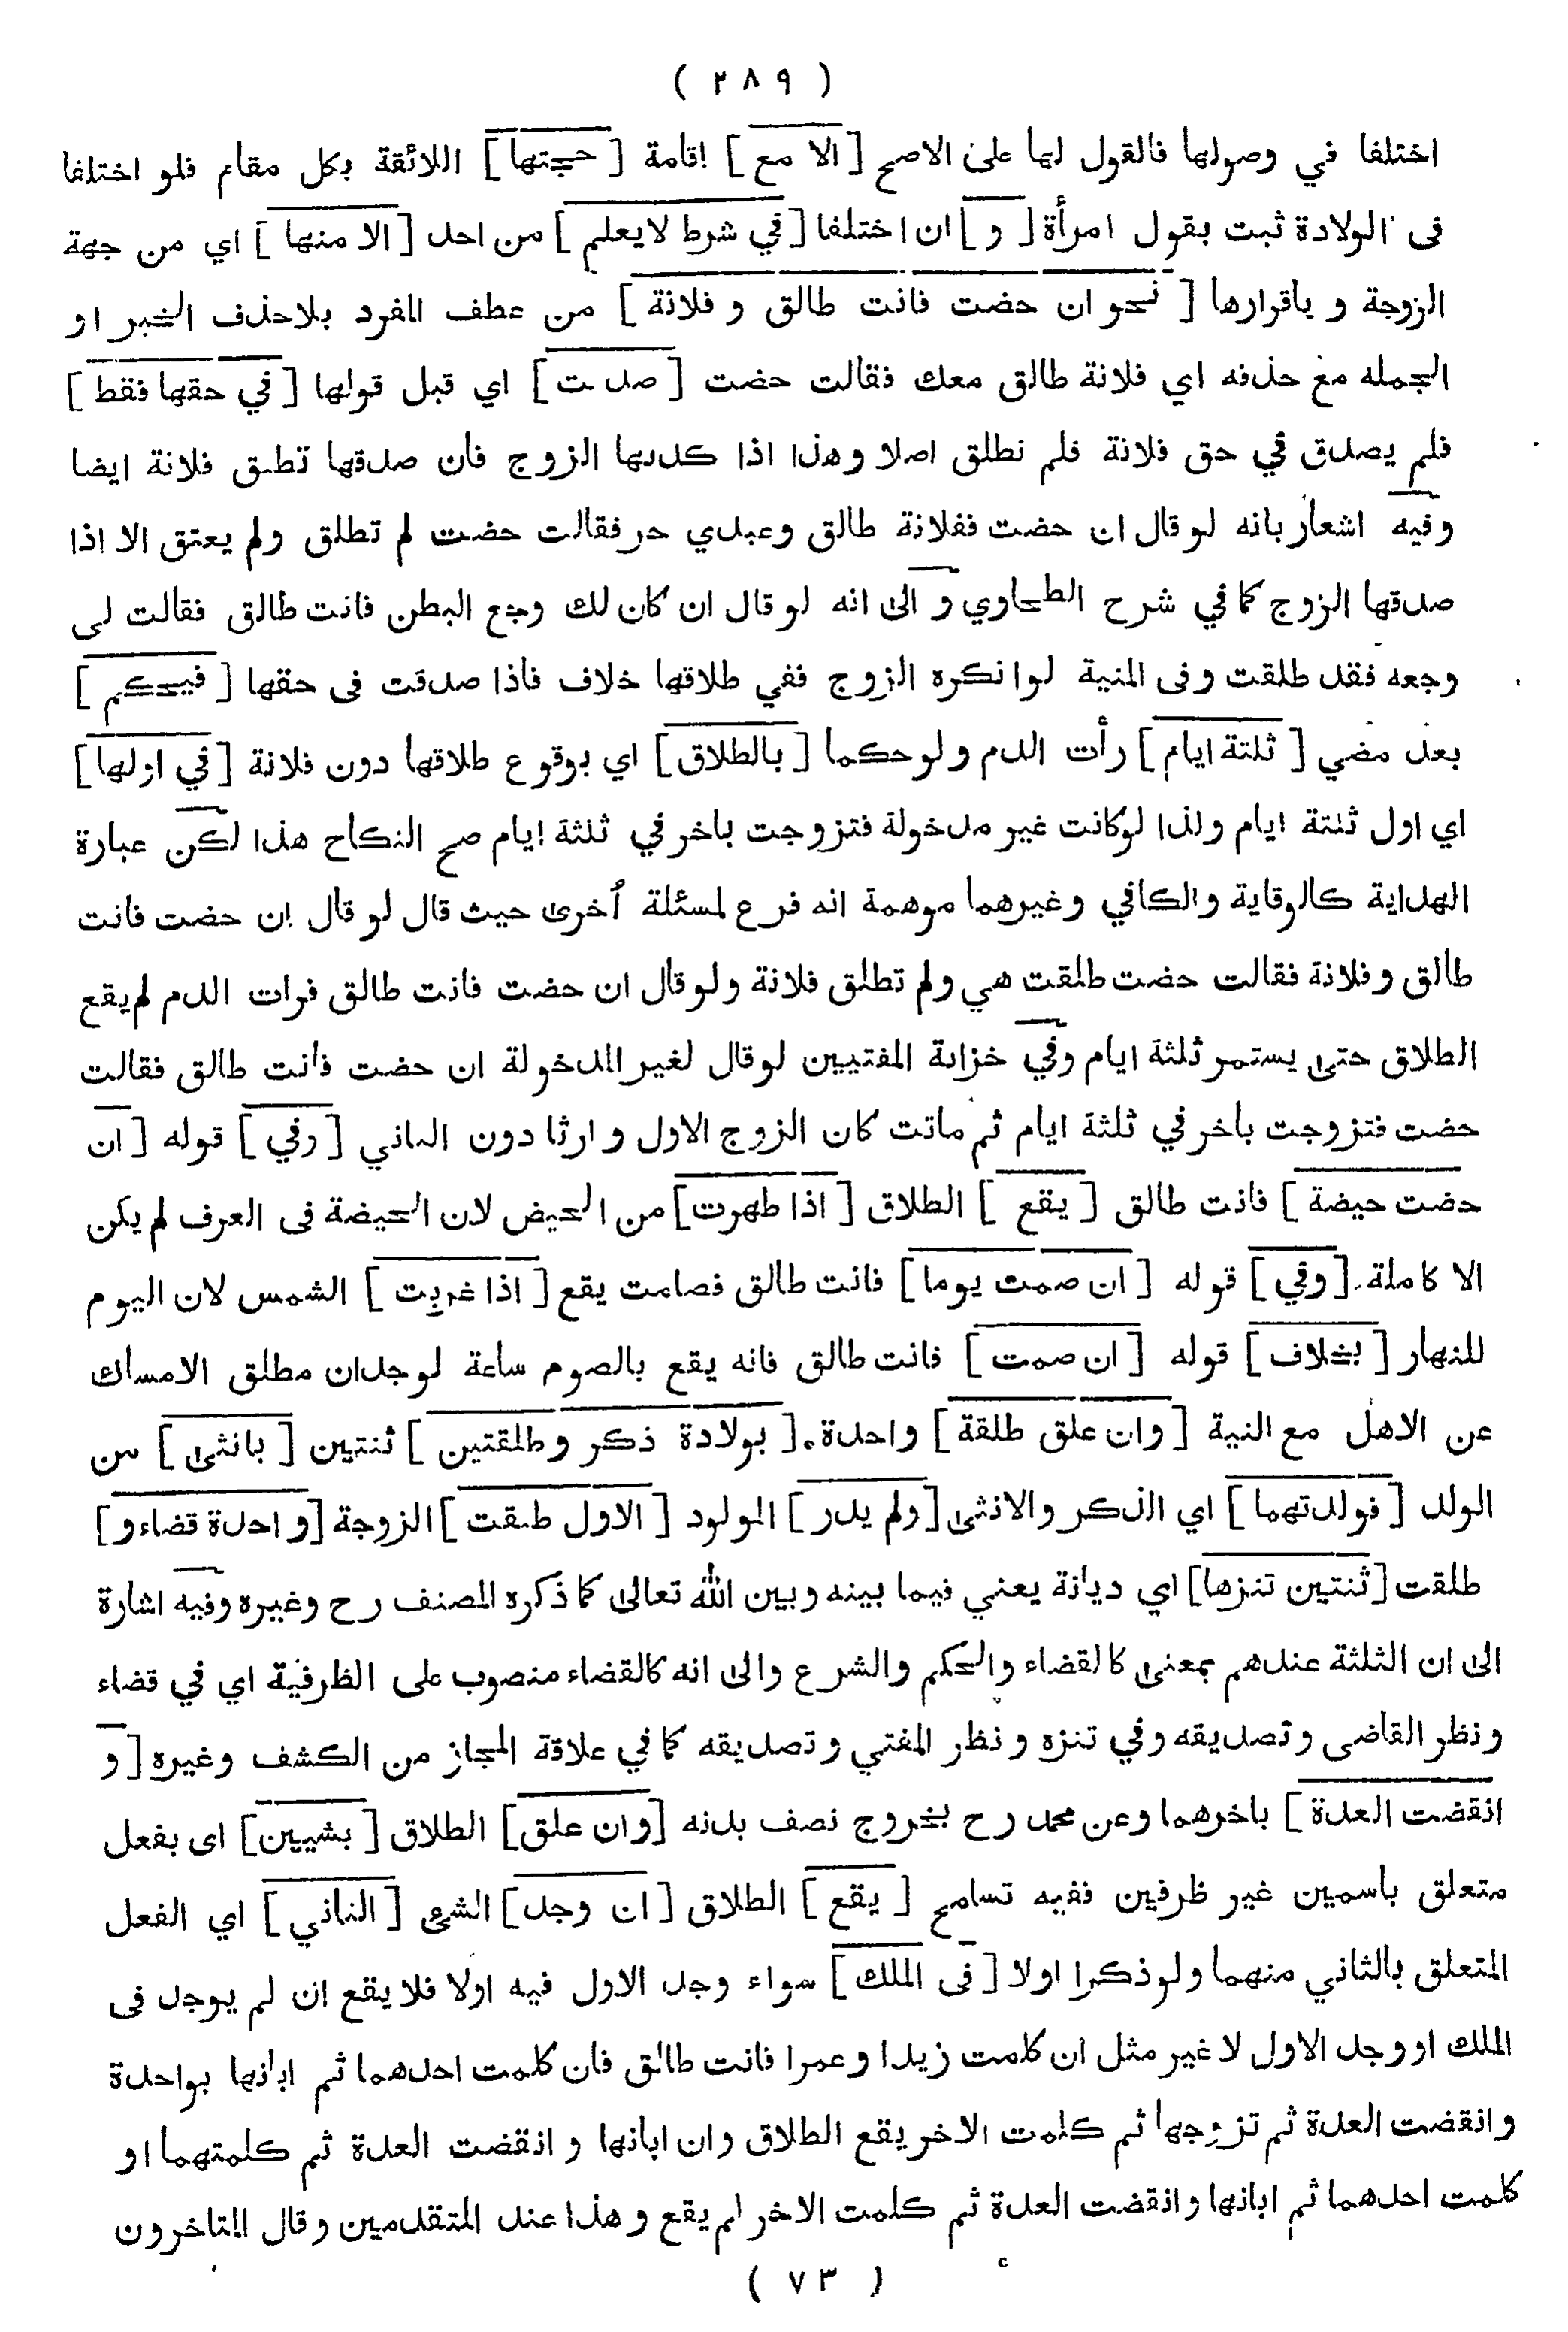 ( ٢٨٩ )
اختلفا في وصولها فالقول لها على الاصح [ الا مع ] اقامة [ حجتها ] اللائقة بكل مقام فلو اختلفا
فى الولادة ثبت بقول امرأة [ و ] ان اختلفا [ في شرط لايعلم ] من احد [ الا منها ] اي من جهة
الزوجة و باقرارها [ نحو ان حضت فانت طالق و فلانة ] من عطف المفرد بلاحذف الخبر او
الجمله مع حذفه اي فلانة طالق معك فقالت حضت [ صدقت ] اي قبل قولها [ في حقها فقط ]
فلم يصدق في حق فلانة فلم تطلق اصلا وهذا اذا كذبها الزوج فان صدقها تطلق فلانة ايضا
وفيه اشعار بانه لو قال ان حضت ففلانة طالق وعبدي حر فقالت حضت لم تطلق ولم يعتق الا اذا
صدقها الزوج كما في شرح الطحاوي و الى انه لو قال ان كان لك وجع البطن فانت طالق فقالت لى
وجعه فقد طلقت وفى المنية لوانكره الزوج ففي طلاقها خلاف فاذا صدقت فى حقها [ فيحكم ]
بعد مضي [ ثلثة ايام ] رأت الدم ولو حكما [ بالطلاق ] اي بوقوع طلاقها دون فلانة [ في اولها ]
اي اول ثلثة ايام ولذا لوكانت غير مدخولة فتزوجت باخر في ثلثة ايام صح النكاح هذا لكن عبارة
الهداية كالوقاية والكافي وغيرهما موهمة انه فرع لمسئلة أخرى حيث قال لو قال ان حضت فانت
طالق وفلانة فقالت حضت طلقت هي ولم تطلق فلانة ولو قال ان حضت فانت طالق فرات الدم لم يقع
الطلاق حتى يستمر ثلثة ايام وفي خزانة المفتيين لوقال لغير المدخولة ان حضت فانت طالق فقالت
حضت فتزوجت بأخر في ثلثة ايام ثم ماتت كان الزوج الاول وارثا دون الثاني [ وفي ] قوله [ ان
حضت حيضة ] فانت طالق [ يقع ] الطلاق [ اذا طهرت ] من الحيض لان الحيضة فى العرف لم يكن
الا كاملة [ وفي ] قوله [ ان صمت يوما ] فانت طالق فصامت يقع [ اذا غربت ] الشمس لان اليوم
للنهار [ بخلاف ] قوله [ ان صمت ] فانت طالق فانه يقع بالصوم ساعة لوجدان مطلق الامساك
عن الاهل مع النية [ وان علق طلقة ] واحدة [ بولادة ذكر وطلقتين ] ثنتين [ بانثى ] من
الولد [ فولدتهما ] اي الذكر والانثى [ ولم يدر ] المولود [ الاول طلقت ] الزوجة [ واحدة قضاء و ]
طلقت [ ثنتين تنزها ] اي ديانة يعني فيما بينه وبين الله تعالى كما ذكره المصنف رح وغيره وفيه اشارة
الى ان الثلثة عندهم بمعنى كالقضاء والحكم والشرع والى انه كالقضاء منصوب على الظرفية اي في قضاء
ونظر القاضى وتصديقه وفي تنزه ونظر المفتي وتصديقه كما في علاقة المجاز من الكشف وغيره [ و
انقضت العدة ] باخرهما وعن محمد رح بخروج نصف بدنه [ وان علق ] الطلاق [ بشيين ] اى بفعل
متعلق باسمين غير ظرفين ففيه تسامح [ يقع ] الطلاق [ ان وجد ] الشىء [ الثاني ] اي الفعل
المتعلق بالثاني منهما ولو ذكرا اولا [ فى الملك ] سواء وجد الاول فيه اولا فلا يقع ان لم يوجد فى
الملك او وجد الاول لا غير مثل ان كلمت زيدا وعمرا فانت طالق فان كلمت احدهما ثم ابانها بواحدة
وانقضت العدة ثم تزوجها ثم كلمت الاخر يقع الطلاق وان ابانها و انقضت العدة ثم كلمتهما او
كلمت احدهما ثم ابانها وانقضت العدة ثم كلمت الاخر لم يقع وهذا عند المتقدمين وقال المتاخرون
( ٧٣ )